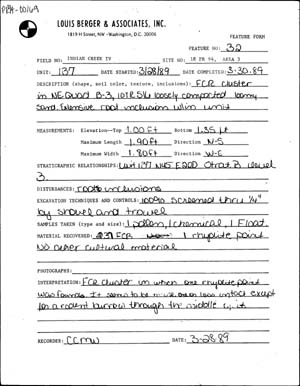 PP4-00169
LOUIS BERGER & ASSOCIATES, INC.
1819 H Street, NW - Washington, D.C. 20006
FEATURE FORM
FEATURE NO: 32
FIELD NO: INDIAN CREEK IV SITE NO: 18 PR 94, AREA 3
UNIT: 137 DATE STARTED: 3/28/89 DATE COMPLETED: 3-30-89
DESCRIPTION (shape, soil color, texture, inclusions): FCR cluster
in NE Quad B-3, 10YR 5/6 loosely compacted loamy
sand. Extensive root inclusion w/in unit
MEASUREMENTS: Elevation--Top 1.00 ft Bottom 1.35 ft
Maximum Length 1.90 ft Direction N-S
Maximum Width 1.80 ft Direction W-E
STRATIGRAPHIC RELATIONSHIPS: Unit 137 Strat B Level
3.
DISTURBANCES: roots inclusions
EXCAVATION TECHNIQUES AND CONTROLS: 100% screened thru 1/4"
by shovel and trowel
SAMPLES TAKEN (type and size): 1 pollen, 1 chemical, 1 Float
MATERIAL RECOVERED: FCR 1 rhyolite point
No other cultural material
PHOTOGRAPHS:
INTERPRETATION: FCR cluster in which one rhyolite point
was found. It seems to be intact except
for a rodent burrow through the middle of it
RECORDER: CCMW DATE: 3-28-89